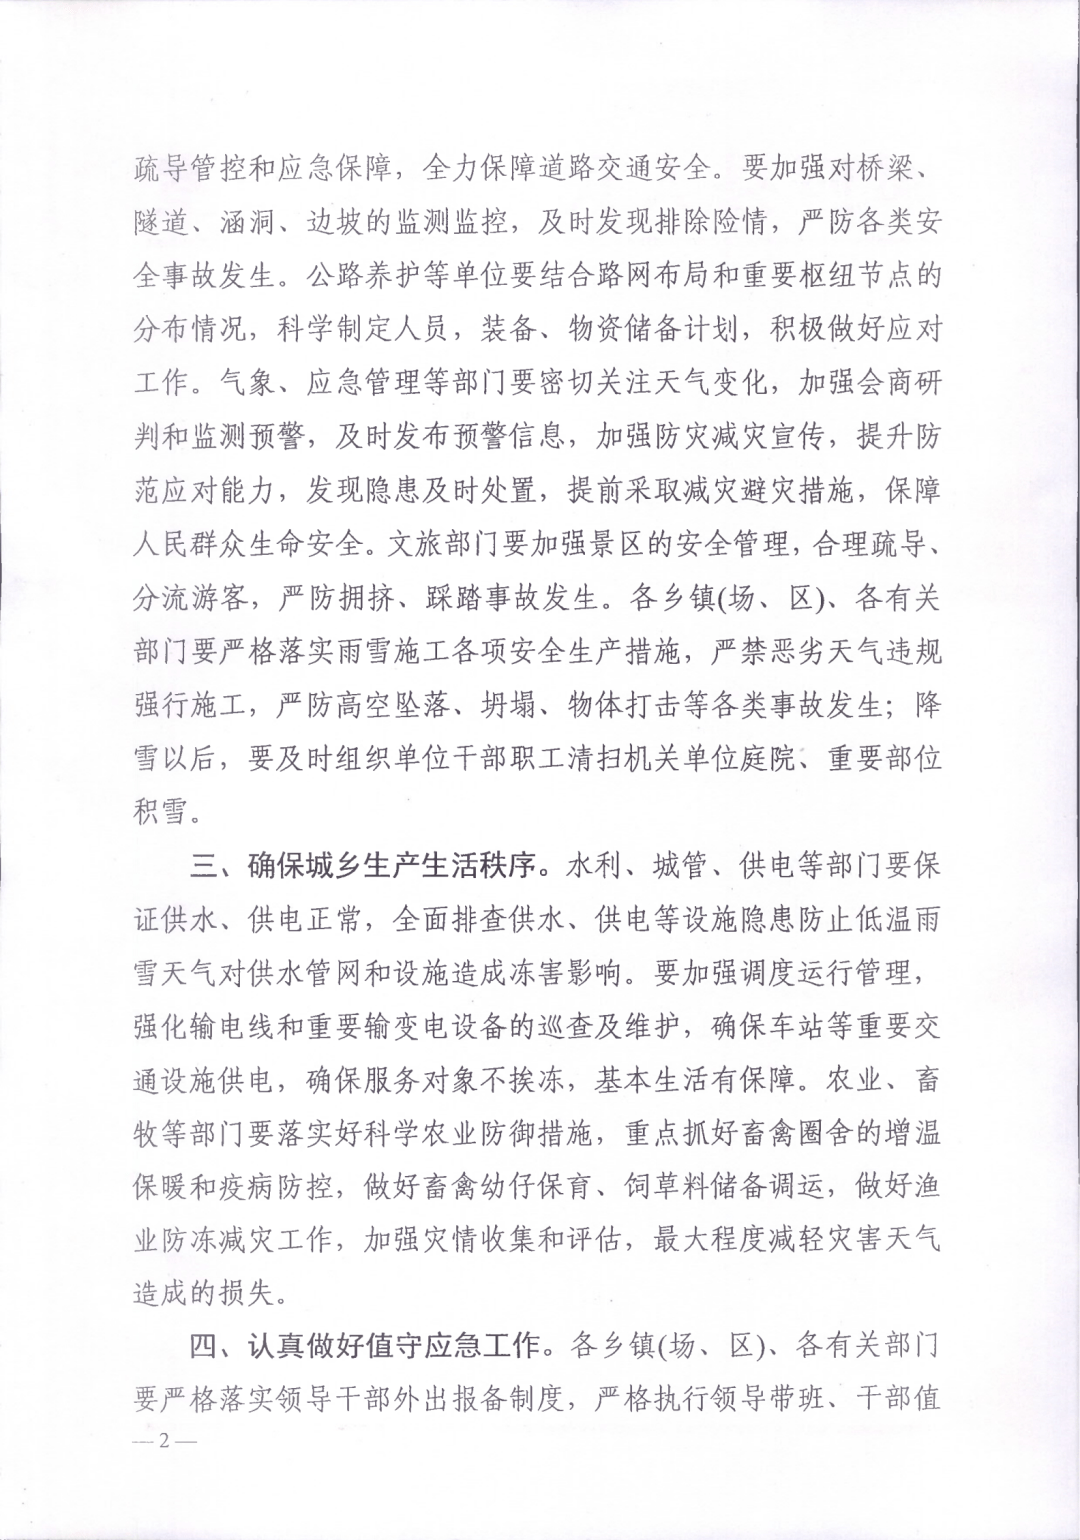 疏导管控和应急保障，全力保障道路交通安全。要加强对桥梁、
隧道、涵洞、边坡的监测监控，及时发现排除险情，严防各类安
全事故发生。公路养护等单位要结合路网布局和重要枢纽节点的
分布情况，科学制定人员，装备、物资储备计划，积极做好应对
工作。气象、应急管理等部门要密切关注天气变化，加强会商研
判和监测预警，及时发布预警信息，加强防灾减灾宣传，提升防
范应对能力，发现隐患及时处置，提前采取减灾避灾措施，保障
人民群众生命安全。文旅部门要加强景区的安全管理，合理疏导、
分流游客，严防拥挤、踩踏事故发生。各乡镇(场、区)、各有关
部门要严格落实雨雪施工各项安全生产措施，严禁恶劣天气违规
强行施工，严防高空坠落、坍塌、物体打击等各类事故发生；降
雪以后，要及时组织单位干部职工清扫机关单位庭院、重要部位
积雪。
三、确保城乡生产生活秩序。水利、城管、供电等部门要保
证供水、供电正常，全面排查供水、供电等设施隐患防止低温雨
雪天气对供水管网和设施造成冻害影响。要加强调度运行管理，
强化输电线和重要输变电设备的巡查及维护，确保车站等重要交
通设施供电，确保服务对象不挨冻，基本生活有保障。农业、畜
牧等部门要落实好科学农业防御措施，重点抓好畜禽圈舍的增温
保暖和疫病防控，做好畜禽幼仔保育、饲草料储备调运，做好渔
业防冻减灾工作，加强灾情收集和评估，最大程度减轻灾害天气
造成的损失。
四、认真做好值守应急工作。各乡镇(场、区)、各有关部门
要严格落实领导干部外出报备制度，严格执行领导带班、干部值
— 2 —